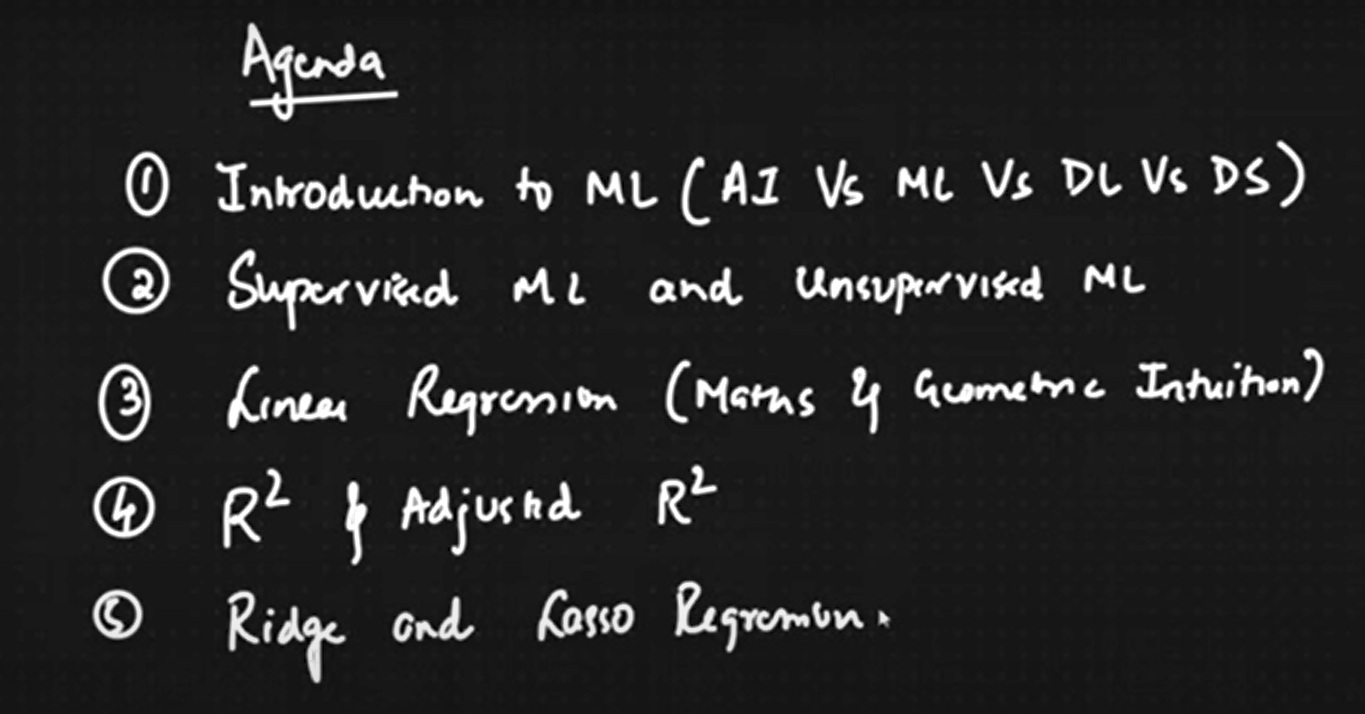 Agenda
① Introduction to ML (AI Vs ML Vs DL Vs DS)
② Supervised ML and Unsupervised ML
③ Linear Regression (Maths & Geometric Intuition)
④ R² & Adjusted R²
⑤ Ridge and Lasso Regression.